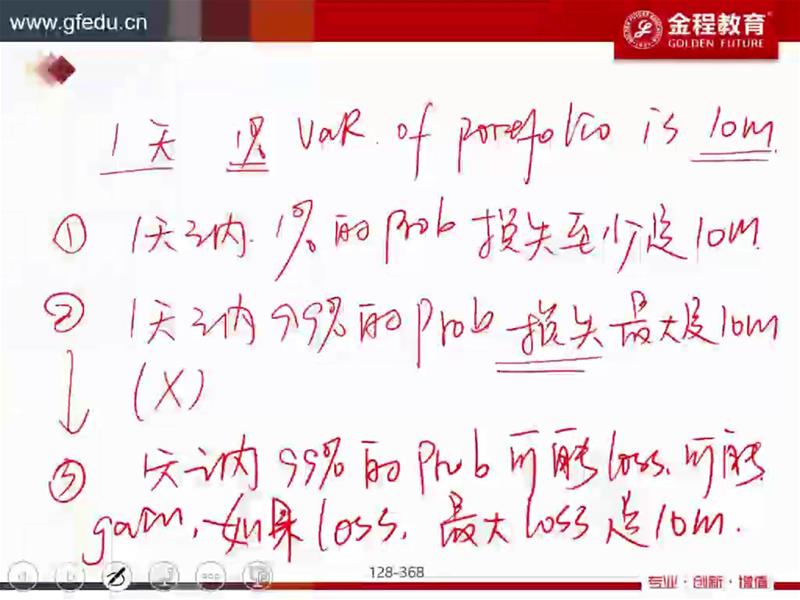 www.gfedu.cn
金程教育
GOLDEN FUTURE
1天 1% VaR of portfolio is 10m
① 1天之内 1%的prob 损失至少是10m
② 1天之内 99%的prob 损失最大是10m
(X)
③ 1天之内 99%的prob 可能loss,可能
gain,如果loss,最大loss是10m.
128-368
专业·创新·增值